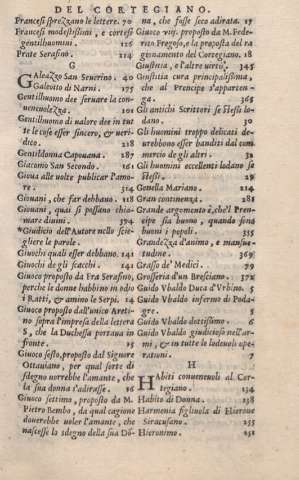 DEL CORTEGIANO.
Francesi sprezzano le lettere. 70
Francesi modestissimi, e cortesi
gentilhuomini. 126
Frate Serafino. 214
G
Galeazzo San Seuerino. 40
Galeotto di Narni. 175
Gentilhuomo dee seruare la con-
ueneuolezza. 201
Gentilhuomo di valore dee in tut
te le cose esser sincero, & veri-
dito. 218
Gentildonna Capouana. 287
Giacomo San Secondo. 161
Gioua alle volte publicar l'amo
re. 314
Giouani, che far debbano. 118
Giouani, quai si possano chia-
mare diuini. 374
Giudicio dell'Autore nello scie-
gliere le parole.
Giuochi quali esser debbano. 141
Giuochi de gli scacchi. 141
Giuoco proposto da Fra Serafino,
perche le donne habbino in odio
i Ratti, & amino le Serpi. 14
Giuoco proposto dall'unico Areti-
no sopra l'impresa della lettera
S, che la Duchessa portaua in
fronte. 15
Giuoco sesto, proposto dal Signore
Ottauiano, per qual sorte di
sdegno vorrebbe l'amante, che
la sua donna s'adirasse. 16
Giuoco settimo, proposto da M.
Pietro Bembo, da qual cagione
douerebbe voler l'amante, che
nascesse lo sdegno della sua Dō-
na, che fosse seco adirata. 17
Giuoco viij. proposto da M. Fede-
rico Fregoso, e la proposta del ra
gionamento del Cortegiano. 18
Giustitia, e l'altre virtù. 345
Giustitia cura principalissima,
che al Prencipe s'apparten-
ga. 365
Gli antichi Scrittori se stessi lo-
dano. 30
Gli huomini troppo delicati de-
urebbono esser banditi dal com
mercio de gli altri. 32
Gli huomini eccellenti lodano se
stessi. 29
Gonella Mariano. 214
Gran continenza. 281
Grande argomento è, che'l Pren
cipe sia buono, quando sono
buoni i popoli. 355
Grandezza d'animo, e mansue-
tudine. 369
Grasso de' Medici. 79
Grosseria d'un Bresciano. 172
Guido Vbaldo Duca d'Vrbino.
Guido Vbaldo infermo di Poda-
gre. 5
Guido Vbaldo dottissimo. 6
Guido Vbaldo giudicioso nell'ar-
mi, & in tutte le lodeuoli ope-
rationi. 7
H
Habiti conueneuoli al Cor-
tegiano. 134
Habito di Donna. 238
Harmonia figliuola di Hierone
Siracusano. 255
Hieronimo. 251